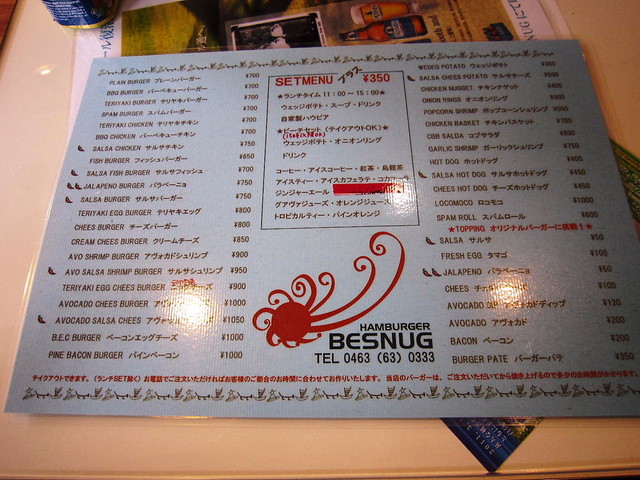 PLAIN BURGER プレーンバーガー ¥700
BBQ BURGER バーベキューバーガー ¥700
TERIYAKI BURGER テリヤキバーガー ¥700
SPAM BURGER スパムバーガー ¥700
TERIYAKI CHICKEN テリヤキチキン ¥700
BBQ CHICKEN バーベキューチキン ¥700
SALSA CHICKEN サルサチキン ¥750
FISH BURGER フィッシュバーガー ¥650
FISH BURGER SALSA サルサフィッシュ ¥700
JALAPENO BURGER ハラペーニョ ¥750
SALSA BURGER サルサバーガー ¥750
TERIYAKI EGG BURGER テリヤキエッグ ¥800
CHEES BURGER チーズバーガー ¥800
CREAM CHEES BURGER クリームチーズ ¥850
AVO SHRIMP BURGER アヴォカドシュリンプ ¥900
AVO SALSA SHRIMP BURGER サルサシュリンプ ¥950
TERIYAKI EGG CHEES BURGER ¥900
AVOCADO CHEES BURGER ¥1000
AVOCADO SALSA CHEES ¥1000
B.E.C BURGER ベーコンエッグチーズ ¥1000
PINE BACON BURGER パインベーコン ¥1000
SETMENU ¥350
★ランチタイム 11:00〜15:00★
ウェッジポテト・スープ・ドリンク
自家製ハウピア
★ビーチセット (テイクアウトOK)★
ウェッジポテト・オニオンリング
ドリンク
コーヒー・アイスコーヒー・紅茶・烏龍茶
アイスティー・アイスカフェラテ・コカコーラ
ジンジャーエール
グアヴァジュース・オレンジジュース
トロピカルティー・パインオレンジ
HAMBURGER
BESNUG
TEL 0463 (63) 0333
WEDEG POTATO ウェッジポテト
SALSA CHEES POTATO サルサチーズ
CHICKEN NUGGET チキンナゲット
ONION RINGS オニオンリング
POPCORN SHRIMP ポップコーンシュリンプ
CHICKEN BASKET チキンバスケット
CBB SALDA コブサラダ
GARLIC SHRIMP ガーリックシュリンプ
HOT DOG ホットドッグ ¥400
SALSA HOT DOG サルサホットドッグ ¥450
CHEES HOT DOG チーズホットドッグ ¥450
LOCOMOCO ロコモコ
SPAM ROLL スパムロール
★TOPPING オリジナルバーガーに挑戦！★
SALSA サルサ ¥50
FRESH EGG タマゴ ¥100
JALAPENO ハラペーニョ ¥50
CHEES ¥100
AVOCADO ¥120
AVOCADO アヴォカド ¥200
BACON ベーコン ¥200
BURGER PATE バーガーパテ ¥350
テイクアウトできます。(ランチSET除く) お電話でご注文いただければお客様のご都合のお時間に合わせてお作りいたします。 当店のバーガーは、ご注文いただいてから焼き上げるので多少のお時間がかかります。